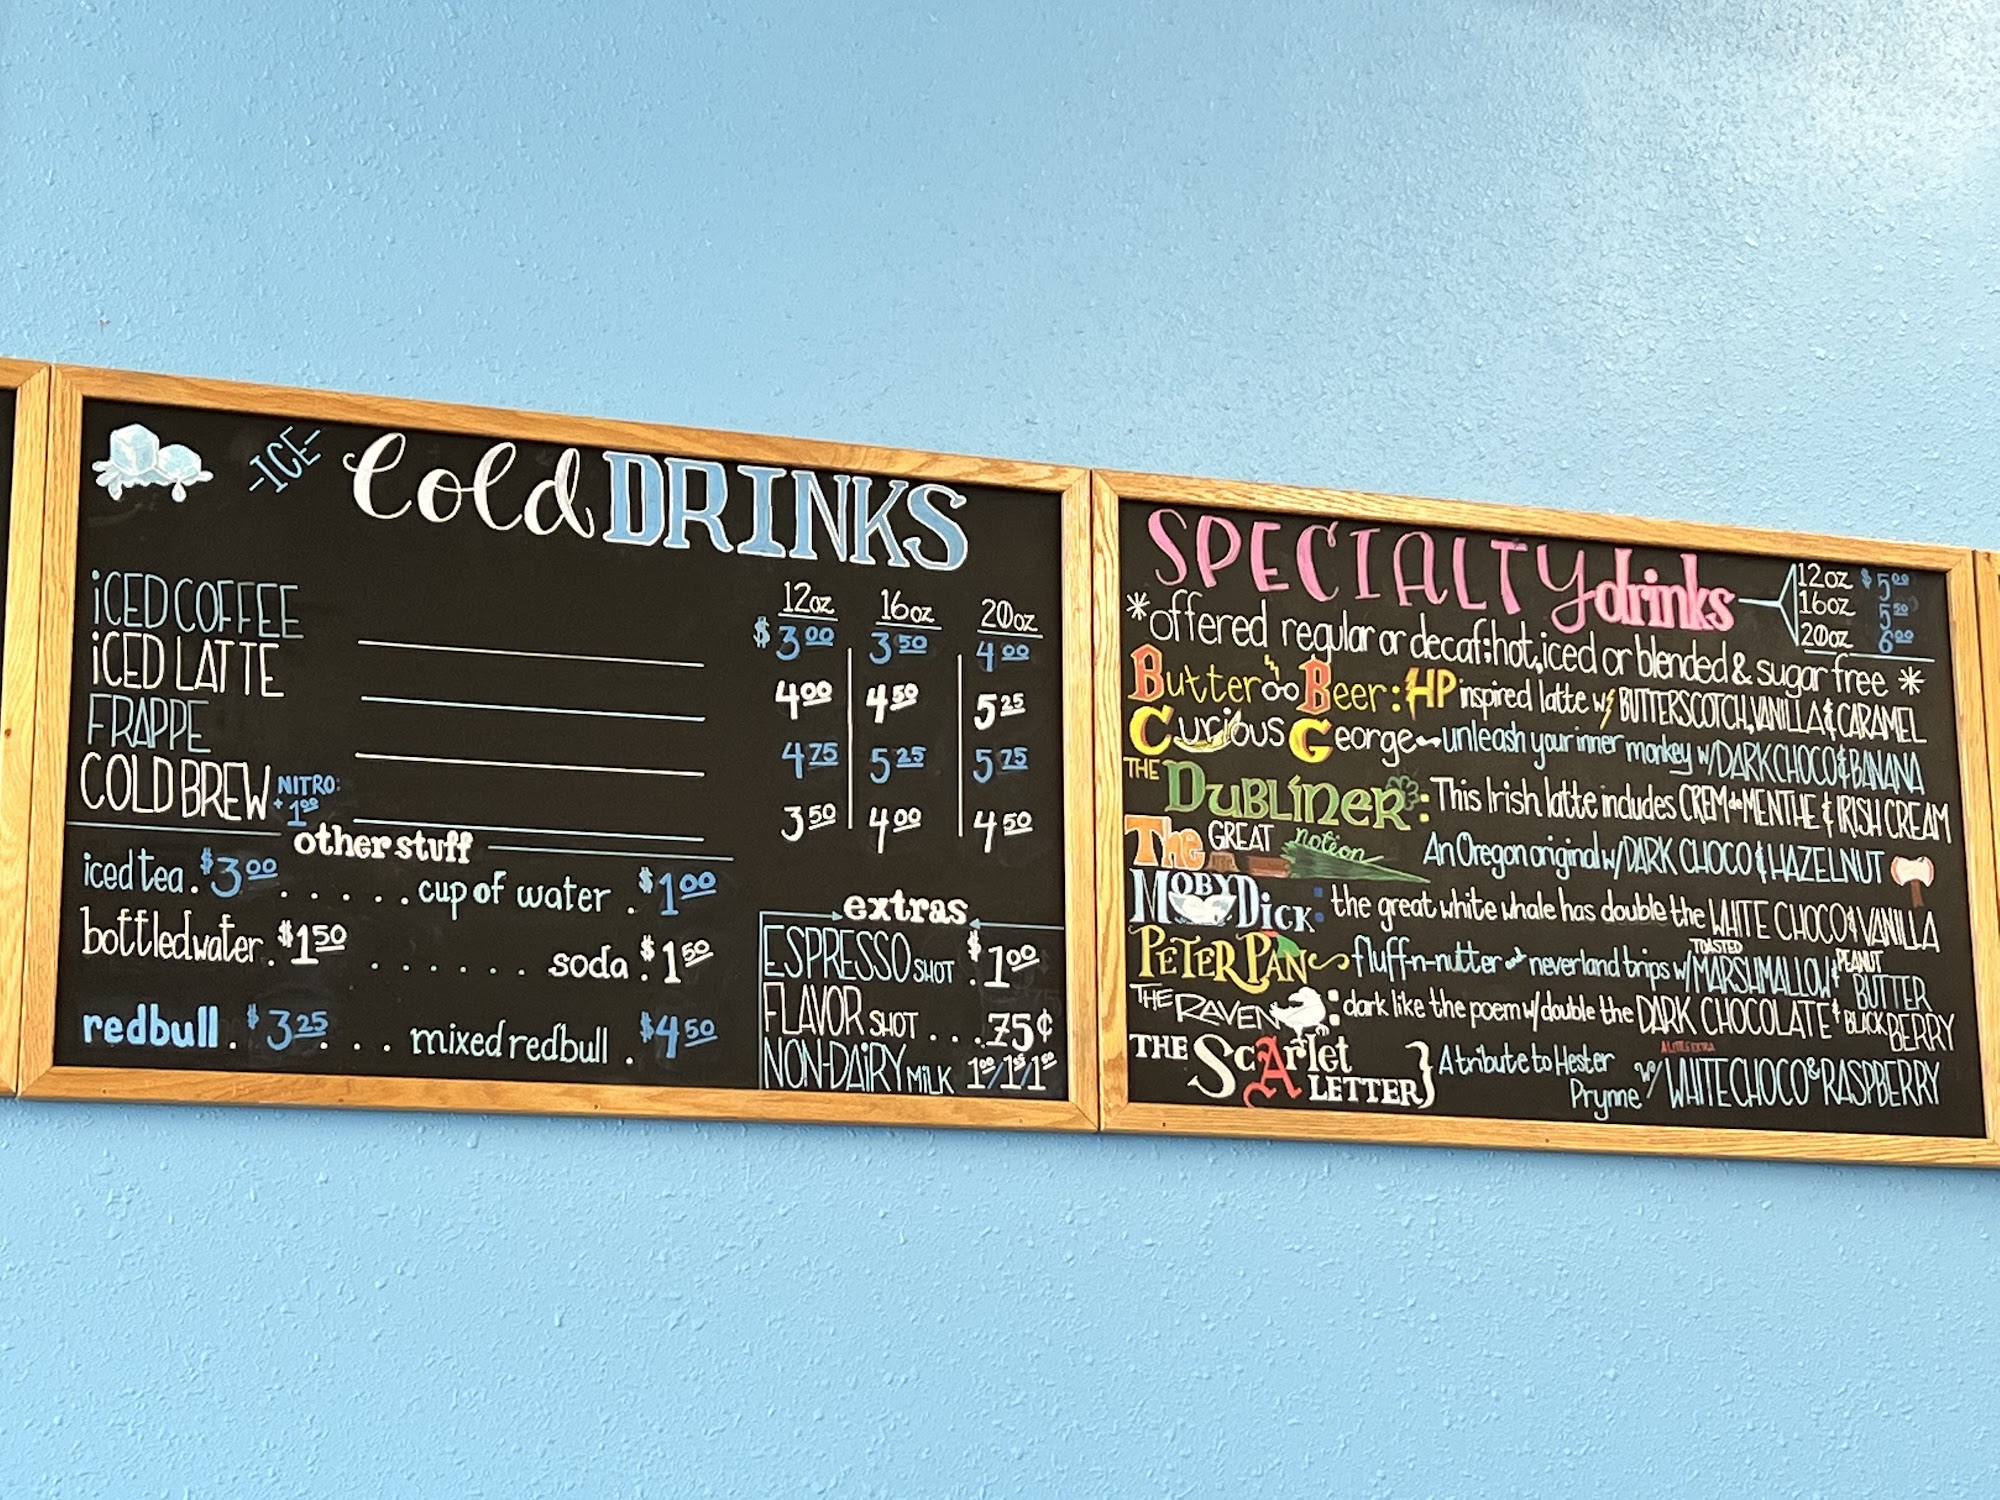 -ICE- Cold DRINKS
12oz 16oz 20oz
iCED COFFEE $3.00 3.50 4.00
iCED LATTE 4.00 4.50 5.25
FRAPPE 4.75 5.25 5.75
COLD BREW NITRO: +1.00 3.50 4.00 4.50
other stuff
iced tea. $3.00 . . . . . cup of water . $1.00
bottled water. $1.50 . . . . . . soda . $1.50
redbull . $3.25 . . . mixed redbull . $4.50
extras
ESPRESSO SHOT . $1.00
FLAVOR SHOT . . . .75¢
NON-DAiRY MiLK
SPECIALTY drinks
12oz $5.00
16oz 5.50
20oz 6.00
*offered regular or decaf: hot, iced or blended & sugar free *
Butter Beer: HP inspired latte w/ BUTTERSCOTCH, VANILLA & CARAMEL
Curious George~ unleash your inner monkey w/ DARK CHOCO & BANANA
THE DUBLINER: This Irish latte includes CREM de MENTHE & IRISH CREAM
The GREAT notion An Oregon original w/ DARK CHOCO & HAZELNUT
MOBY DICK: the great white whale has double the WHITE CHOCO & VANILLA
PETER PAN~ fluff-n-nutter neverland trips w/ TOASTED MARSHMALLOW & PEANUT BUTTER
THE RAVEN: dark like the poem w/ double the DARK CHOCOLATE & BLACKBERRY
THE ScArlet LETTER} A tribute to Hester Prynne w/ A LITTLE EXTRA WHITE CHOCO & RASPBERRY